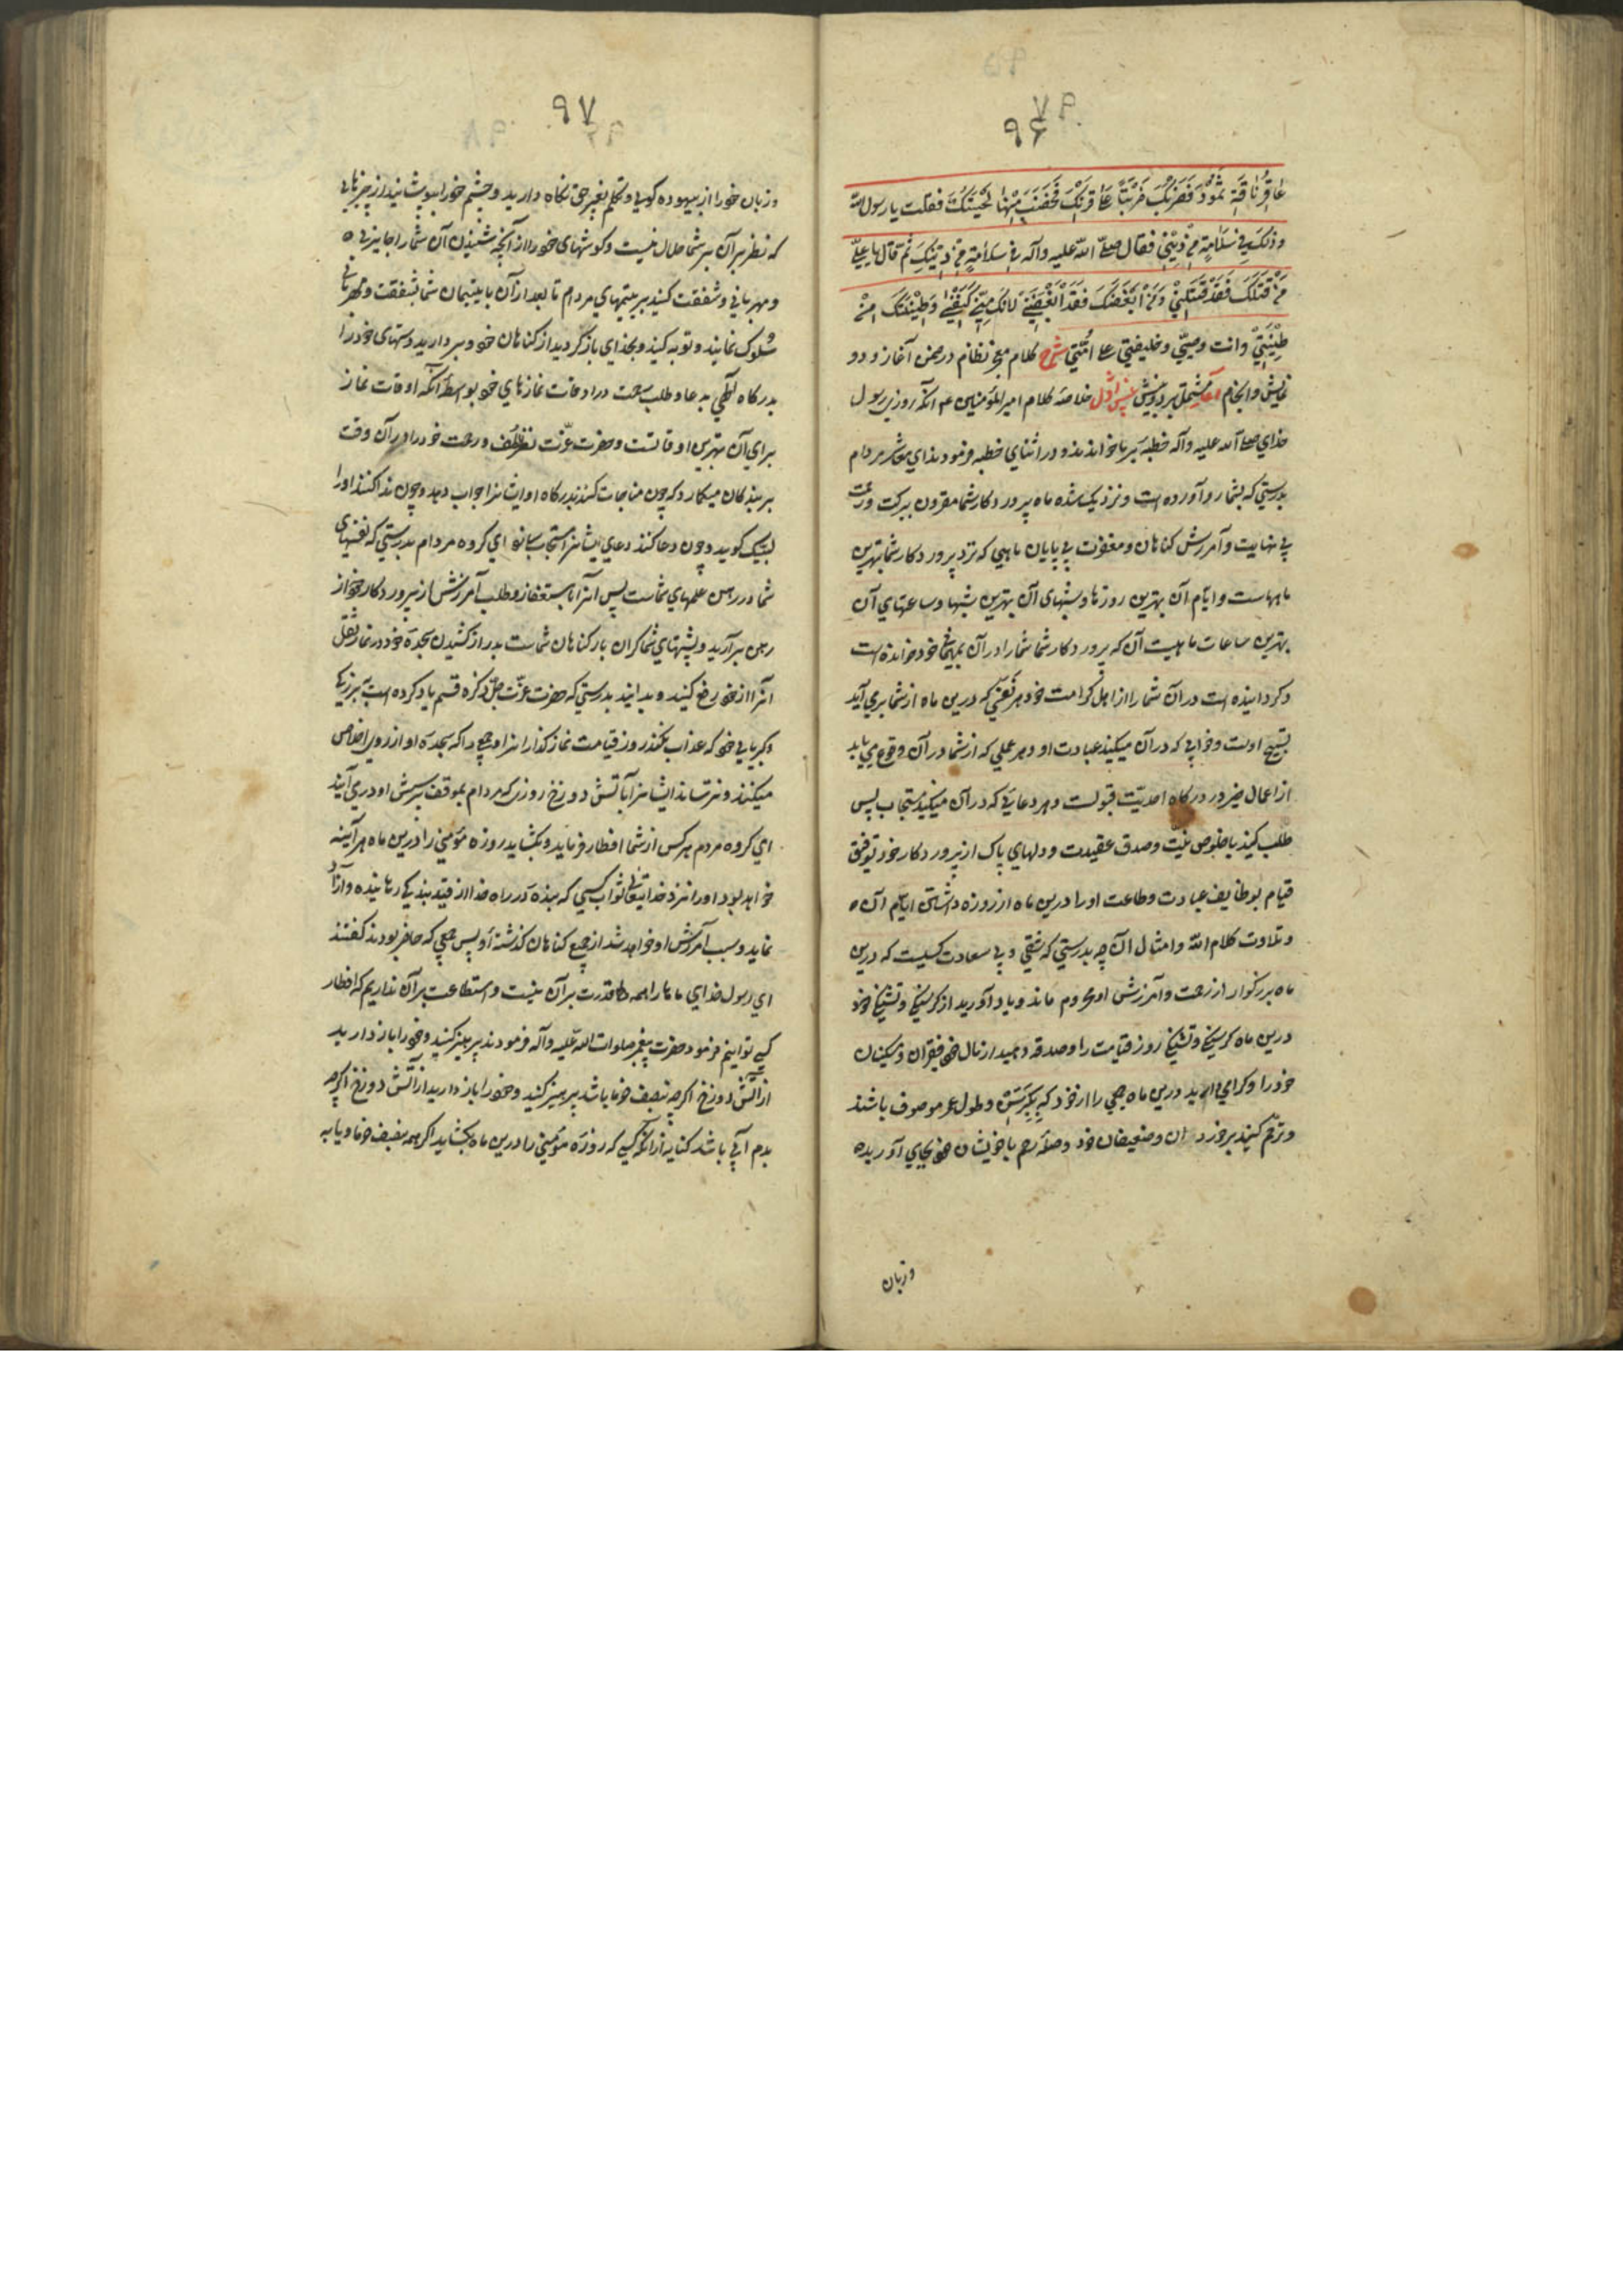 ۹۶
عاقر ناقة ثمود فضربك ضربتا علی قرنک فخضنب منها لحیتک فقلت یا رسول الله
وذلک فی سلامة من دینی فقال صلی الله علیه وآله فی سلامة من دینک ثم قال یا علی
من قتلک فقد قتلنی ومن ابغضک فقد ابغضنی لانک منی کنفسی وطینتک من
طینتی وانت وصیی وخلیفتی علی امتی شرح کلام معجز نظام در ضمن آغاز و دو
نمایش وانجام آغاز مشتمل بر دو نمایش نمایش اول خلاصه کلام امیر المؤمنین ع م آنکه روزی رسول
خدای صلی الله علیه وآله خطبه بر ما خواندند ودر اثنای خطبه فرمودند ای معاشر مردام
بدرستی که بشما رو آورده است ونزدیک شده ماه پروردکار شما مقرون ببرکت ورحمت
بی نهایت وآمرزش کناهان ومغفرت بی پایان ماهی که نزد پروردکار شما بهترین
ماههاست وایام آن بهترین روزها وشبهای آن بهترین شبها وساعتهای آن
بهترین ساعات ماهیست آن که پروردکار شما شما را در آن بمهمانی خود خوانده است
وکردانیده است در آن شما را از اهل کرامت خود هر نفسی که درین ماه از شما برمی آید
تسبیح اوست وخوابی که در آن میکنید عبادت او وهر عملی که از شما در آن وقوع می یابد
از اعمال خیر ور درکاه احدیت قبولست وهر دعائی که در آن میکنید مستجاب پس
طلب کنید با خلوص نیت وصدق عقیدت ودلهای پاک از پروردکار خود توفیق
قیام بوظایف عبادت وطاعت او را درین ماه از روزه داشتن ایام آن
وتلاوت کلام الله وامثال آن چه بدرستی که شقی وبی سعادت کسیست که درین
ماه بزرکوار از رحمت وآمرزش او محروم ماند ویاد آورید از کرسنکی وتشنکی خود
درین ماه کرسنکی وتشنکی روز قیامت را وصدقه دهید از مال خود فقیران ومسکینان
خود را وکرامی دارید درین ماه جمعی را از خود که بکبر سن وطول عمر موصوف باشند
وترحم کنید بر خردان وضعیفان خود وصله رحم با خویشان خود بجای آورید
وزبان
۹۷
وزبان خود را از بیهوده کویی وتکلم بغیر حق نکاه دارید وچشم خود را بپوشانید از چیزهایی
که نظر بر آن بر شما حلال نیست وکوشهای خود را از آنچه شنیدن آن شما را جایز نی
ومهربانی وشفقت کنید بر یتیمهای مردام تا بعد از آن با یتیمان شما بشفقت ومهربانی
سلوک نمایند وتوبه کنید وبخدای باز کردید از کناهان خود وبردارید دستهای خود را
بدرکاه آلهی بدعا وطلب رحمت در اوقات نمازهای خود بواسطه آنکه اوقات نماز
برای آن بهترین اوقاتست وحضرت عزت نظر لطف ورحمت خود را در آن وقت
بر بندکان میکمارد که چون مناجات کنند بدرکاه او ایشانرا جواب دهد وچون ندا کنند او را
لبیک کوید وچون دعا کنند دعای ایشانرا مستجاب سازد ای کروه مردام بدرستی که نفسهای
شما در رهن عملهای شماست پس آنرا باستغفار وطلب آمرزش از پروردکار خود از
رهن برآرید وپشتهای شما کران بار کناهان شماست بدراز کشیدن سجده خود در نماز ثقل
آنرا از خود رفع کنید وبدانید بدرستی که حضرت عزت جل ذکره قسم یاد کرده است ببزرکی
وکبریایی خود که عذاب نکند روز قیامت نمازکذارانرا وجمعی را که سجده او از روی اخلاص
میکنند ونترساند ایشانرا بآتش دوزخ روزی که مردام بموقف پرسش او درمی آیند
ای کروه مردم هر کس از شما افطار فرماید وبکشاید روزه مؤمنی را درین ماه هر آینه
خواهد بود او را نزد خدایتعالی ثواب کسی که بنده در راه خدا از قید بندکی رهانیده وآزاد
نماید وسبب آمرزش او خواهد شد از جمیع کناهان کذشته او پس جمعی که حاضر بودند کفتند
ای رسول خدای ما را همه قدرت بر آن نیست واستطاعت بر آن نداریم که افطار
کسی توانیم فرمود حضرت پیغمبر صلوات الله علیه وآله فرمودند پرهیز کنید وخود را باز دارید
از آتش دوزخ اکرچه بنصف خرما باشد پرهیز کنید وخود را باز دارید از آتش دوزخ اکرچه
بدم آبی باشد کنایه از آنکه کسی که روزه مؤمنی را درین ماه بکشاید اکر همه بنصف خرما ویا به